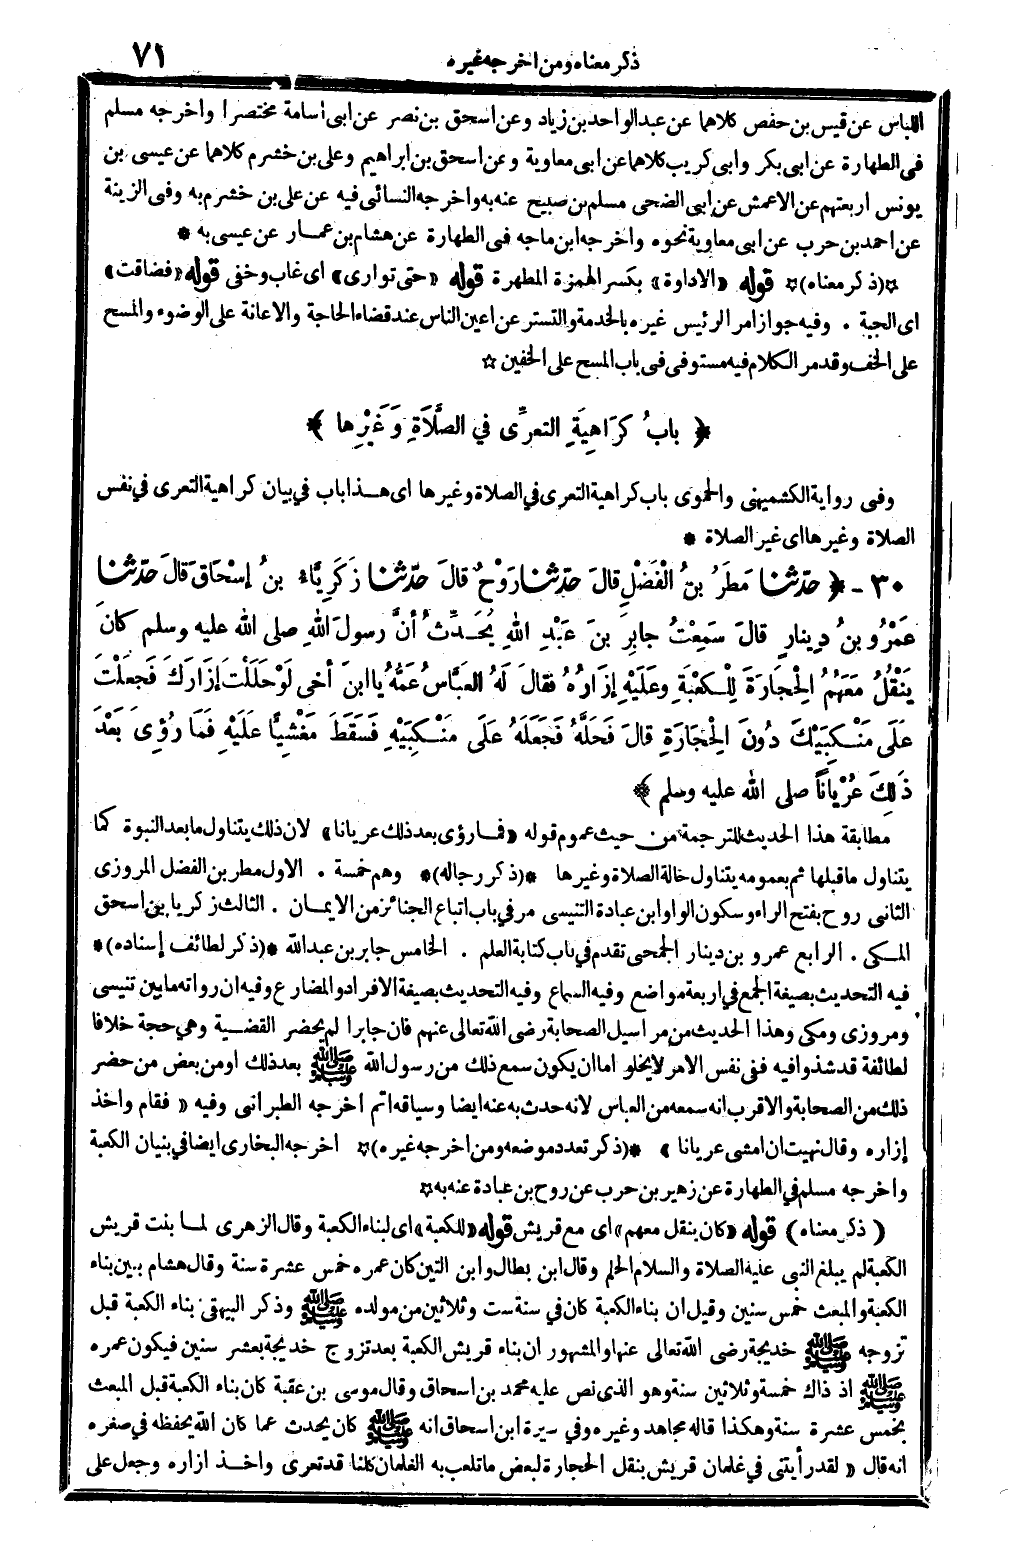 ذكر معناه ومن اخرجه غيره
٧١
اللباس عن قيس بن حفص كلاهما عن عبد الواحد بن زياد وعن اسحق بن نصر عن ابى أسامة مختصرا واخرجه مسلم
فى الطهارة عن ابى بكر وابى كريب كلاهما عن ابى معاوية وعن اسحق بن ابراهيم وعلى بن خشرم كلاهما عن عيسى بن
يونس اربعتهم عن الاعمش عن أبى الضحى مسلم بن صبيح عنه به واخرجه النسائى فيه عن على بن خشرم به وفى الزينة
عن احمد بن حرب عن ابى معاوية نحوه واخرجه ابن ماجه فى الطهارة عن هشام بن عمار عن عيسى به *
☆(ذكر معناه)☆ قوله «الاداوة» بكسر الهمزة المطهرة قوله «حتى توارى» اى غاب وخفى قوله «فضاقت»
اى الجبة . وفيه جواز امر الرئيس غيره بالخدمة والتستر عن اعين الناس عند قضاء الحاجة والاعانة على الوضوء والمسح
على الخف وقد مر الكلام فيه مستوفى فى باب المسح على الخفين ☆
﴿ بابُ كَرَاهِيَةِ التعرِّى في الصَّلَاةِ وَغَيْرِها ﴾
وفى رواية الكشميهنى والحموى باب كراهية التعرى في الصلاة وغيرها اى هذا باب في بيان كراهية التعرى في نفس
الصلاة وغيرها اى غير الصلاة *
٣٠ - ﴿ حدّثنا مَطَرُ بنُ الْفَضْلِ قالَ حدّثنا رَوْحٌ قالَ حدّثنا زكَرِيَّاءُ بنُ إسْحَاقَ قالَ حدّثنا
عَمْرُو بنُ دِينارٍ قالَ سَمِعْتُ جابِرَ بنَ عَبْدِ اللهِ يُحَدِّثُ أنَّ رسولَ اللهِ صلى الله عليه وسلم كانَ
يَنْقُلُ مَعَهُمُ الْحِجَارَةَ لِلْكَعْبَةِ وعَلَيْهِ إزَارُهُ فقالَ لَهُ العَبَّاسُ عَمُّهُ يا ابنَ أخى لَوْ حَلَلْتَ إزَارَكَ فَجعلْتَ
عَلَى مَنْكِبَيْكَ دُونَ الْحِجَارَةِ قالَ فَحَلَّهُ فَجَعَلَهُ عَلَى مَنْكِبَيْهِ فَسَقَطَ مَغْشِيًّا عَلَيْهِ فَمَا رُؤِىَ بَعْدَ
ذَلِكَ عُرْيَاناً صلى الله عليه وسلم ﴾
مطابقة هذا الحديث للترجمة من حيث عموم قوله «فما رؤى بعد ذلك عريانا» لان ذلك يتناول ما بعد النبوة كما
يتناول ما قبلها ثم بعمومه يتناول حالة الصلاة وغيرها *(ذكر رجاله)* وهم خمسة . الاول مطر بن الفضل المروزى
الثانى روح بفتح الراء وسكون الواو ابن عبادة التنيسى مر في باب اتباع الجنائز من الايمان . الثالث زكريا بن اسحق
المكى . الرابع عمرو بن دينار الجمحى تقدم في باب كتابة العلم . الخامس جابر بن عبد الله *(ذكر لطائف إسناده)*
فيه التحديث بصيغة الجمع في اربعة مواضع وفيه السماع وفيه التحديث بصيغة الافراد والمضارع وفيه ان رواته ما بين تنيسى
ومروزى ومكى وهذا الحديث من مراسيل الصحابة رضى الله تعالى عنهم فان جابرا لم يحضر القضية وهي حجة خلافا
لطائفة قد شذوا فيه ففى نفس الامر لا يخلو اما ان يكون سمع ذلك من رسول الله ﷺ بعد ذلك او من بعض من حضر
ذلك من الصحابة والاقرب انه سمعه من العباس لانه حدث به عنه ايضا وسياقه اتم اخرجه الطبرانى وفيه « فقام واخذ
إزاره وقال نهيت ان امشى عريانا » *(ذكر تعدد موضعه ومن اخرجه غيره)☆ اخرجه البخارى ايضا في بنيان الكعبة
واخرجه مسلم في الطهارة عن زهير بن حرب عن روح بن عبادة عنه به☆
(ذكر معناه) قوله «كان ينقل معهم» اى مع قريش قوله «للكعبة» اى لبناء الكعبة وقال الزهرى لما بنت قريش
الكعبة لم يبلغ النبى عليه الصلاة والسلام الحلم وقال ابن بطال وابن التين كان عمره خمس عشرة سنة وقال هشام بين بناء
الكعبة والمبعث خمس سنين وقيل ان بناء الكعبة كان في سنة ست وثلاثين من مولده ﷺ وذكر البيهقى بناء الكعبة قبل
تزوجه ﷺ خديجة رضى الله تعالى عنها والمشهور ان بناء قريش الكعبة بعد تزوج خديجة بعشر سنين فيكون عمره
ﷺ اذ ذاك خمسة وثلاثين سنة وهو الذى نص عليه محمد بن اسحاق وقال موسى بن عقبة كان بناء الكعبة قبل المبعث
بخمس عشرة سنة وهكذا قاله مجاهد وغيره وفي سيرة ابن اسحاق انه ﷺ كان يحدث عما كان الله يحفظه في صغره
انه قال « لقد رأيتنى في غلمان قريش بنقل الحجارة لبعض ما تلعب به الغلمان كلنا قد تعرى واخذ ازاره وجعل على